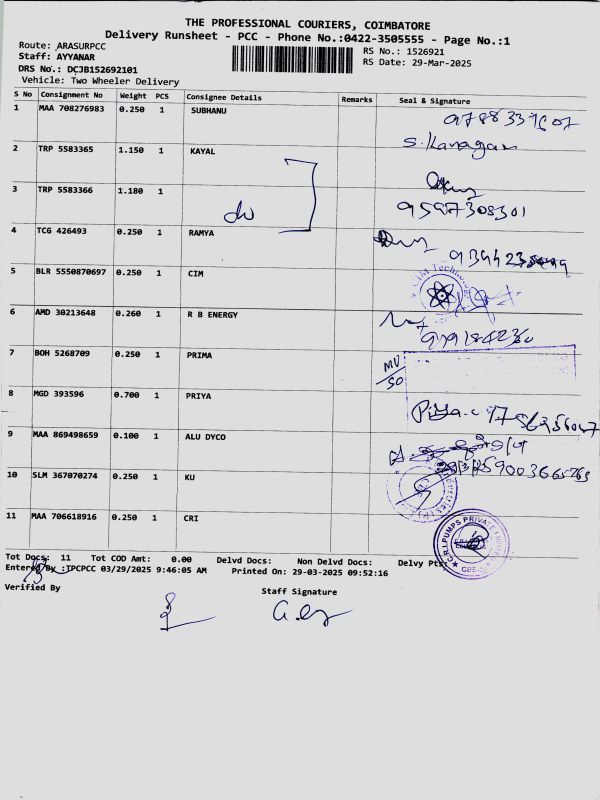 THE PROFESSIONAL COURIERS, COIMBATORE
Delivery Runsheet - PCC - Phone No.:0422-3505555 - Page No.:1
Route: ARASURPCC
RS No.: 1526921
Staff: AYYANAR
RS Date: 29-Mar-2025
DRS No.: DCJB152692101
Vehicle: Two Wheeler Delivery
S No Consignment No Weight PCS Consignee Details Remarks Seal & Signature
1 MAA 708276983 0.250 1 SUBHANU
S. Kanagan
2 TRP 5583365 1.150 1 KAYAL
3 TRP 5583366 1.180 1
9597308301
4 TCG 426493 0.250 1 RAMYA
5 BLR 5550870697 0.250 1 CIM
CIM Technology
6 AMD 30213648 0.260 1 R B ENERGY
7 BOH 5268709 0.250 1 PRIMA
8 MGD 393596 0.700 1 PRIYA
Priya
9 MAA 869498659 0.100 1 ALU DYCO
10 SLM 367070274 0.250 1 KU
11 MAA 706618916 0.250 1 CRI
C.R.I. PUMPS PRIVATE LIMITED
CBE
Tot Docs: 11 Tot COD Amt: 0.00 Delvd Docs: Non Delvd Docs: Delvy Pts:
Entered By :TPCPCC 03/29/2025 9:46:05 AM Printed On: 29-03-2025 09:52:16
Verified By
Staff Signature